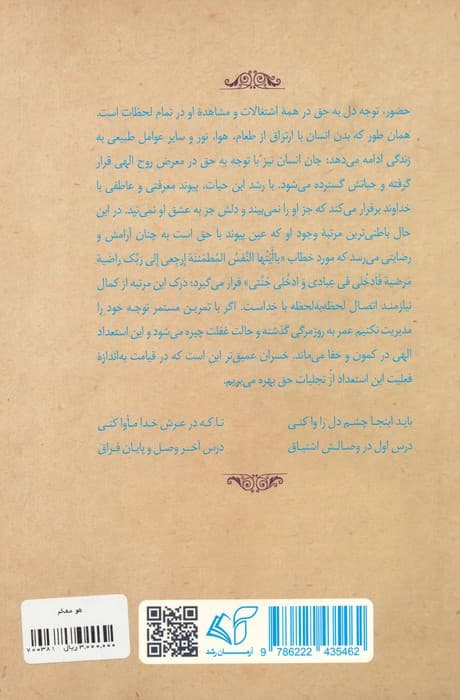 حضور، توجه دل به حق در همه اشتغالات و مشاهدهٔ او در تمام لحظات است.
همان طور که بدن انسان با ارتزاق از طعام، هوا، نور و سایر عوامل طبیعی به
زندگی ادامه می‌دهد؛ جان انسان نیز با توجه به حق در معرض روح الهی قرار
گرفته و حیاتش گسترده می‌شود. با رشد این حیات، پیوند معرفتی و عاطفی با
خداوند برقرار می‌کند که جز او را نمی‌بیند و دلش جز به عشق او نمی‌تپد. در این
حال باطنی‌ترین مرتبهٔ وجود او که عین پیوند با حق است به چنان آرامش و
رضایتی می‌رسد که مورد خطاب «یاأَیَّتُها النَّفْسُ المُطمَئنة إرجعی إلی رَبِّک راضیة
مَرضیة فَادخُلی فی عِبادی وَ ادخُلی جَنَّتی» قرار می‌گیرد؛ درک این مرتبه از کمال
نیازمند اتصال لحظه‌به‌لحظه با خداست. اگر با تمرین مستمر توجه خود را
مدیریت نکنیم عمر به روزمرگی گذشته و حالت غفلت چیره می‌شود و این استعداد
الهی در کمون و خفا می‌ماند. خسران عمیق‌تر این است که در قیامت به‌اندازهٔ
فعلیت این استعداد از تجلیات حق بهره می‌بریم.
باید اینجا چشم دل را وا کنی تا که در عرش خدا مأوا کنی
درس اول در وصالش اشتیاق درس آخر وصل و پایان فراق
هو معکم
۷۰۰۳۸۱ ۳,۰۰۰,۰۰۰ ریال
آرمان رشد
9 786222 435462